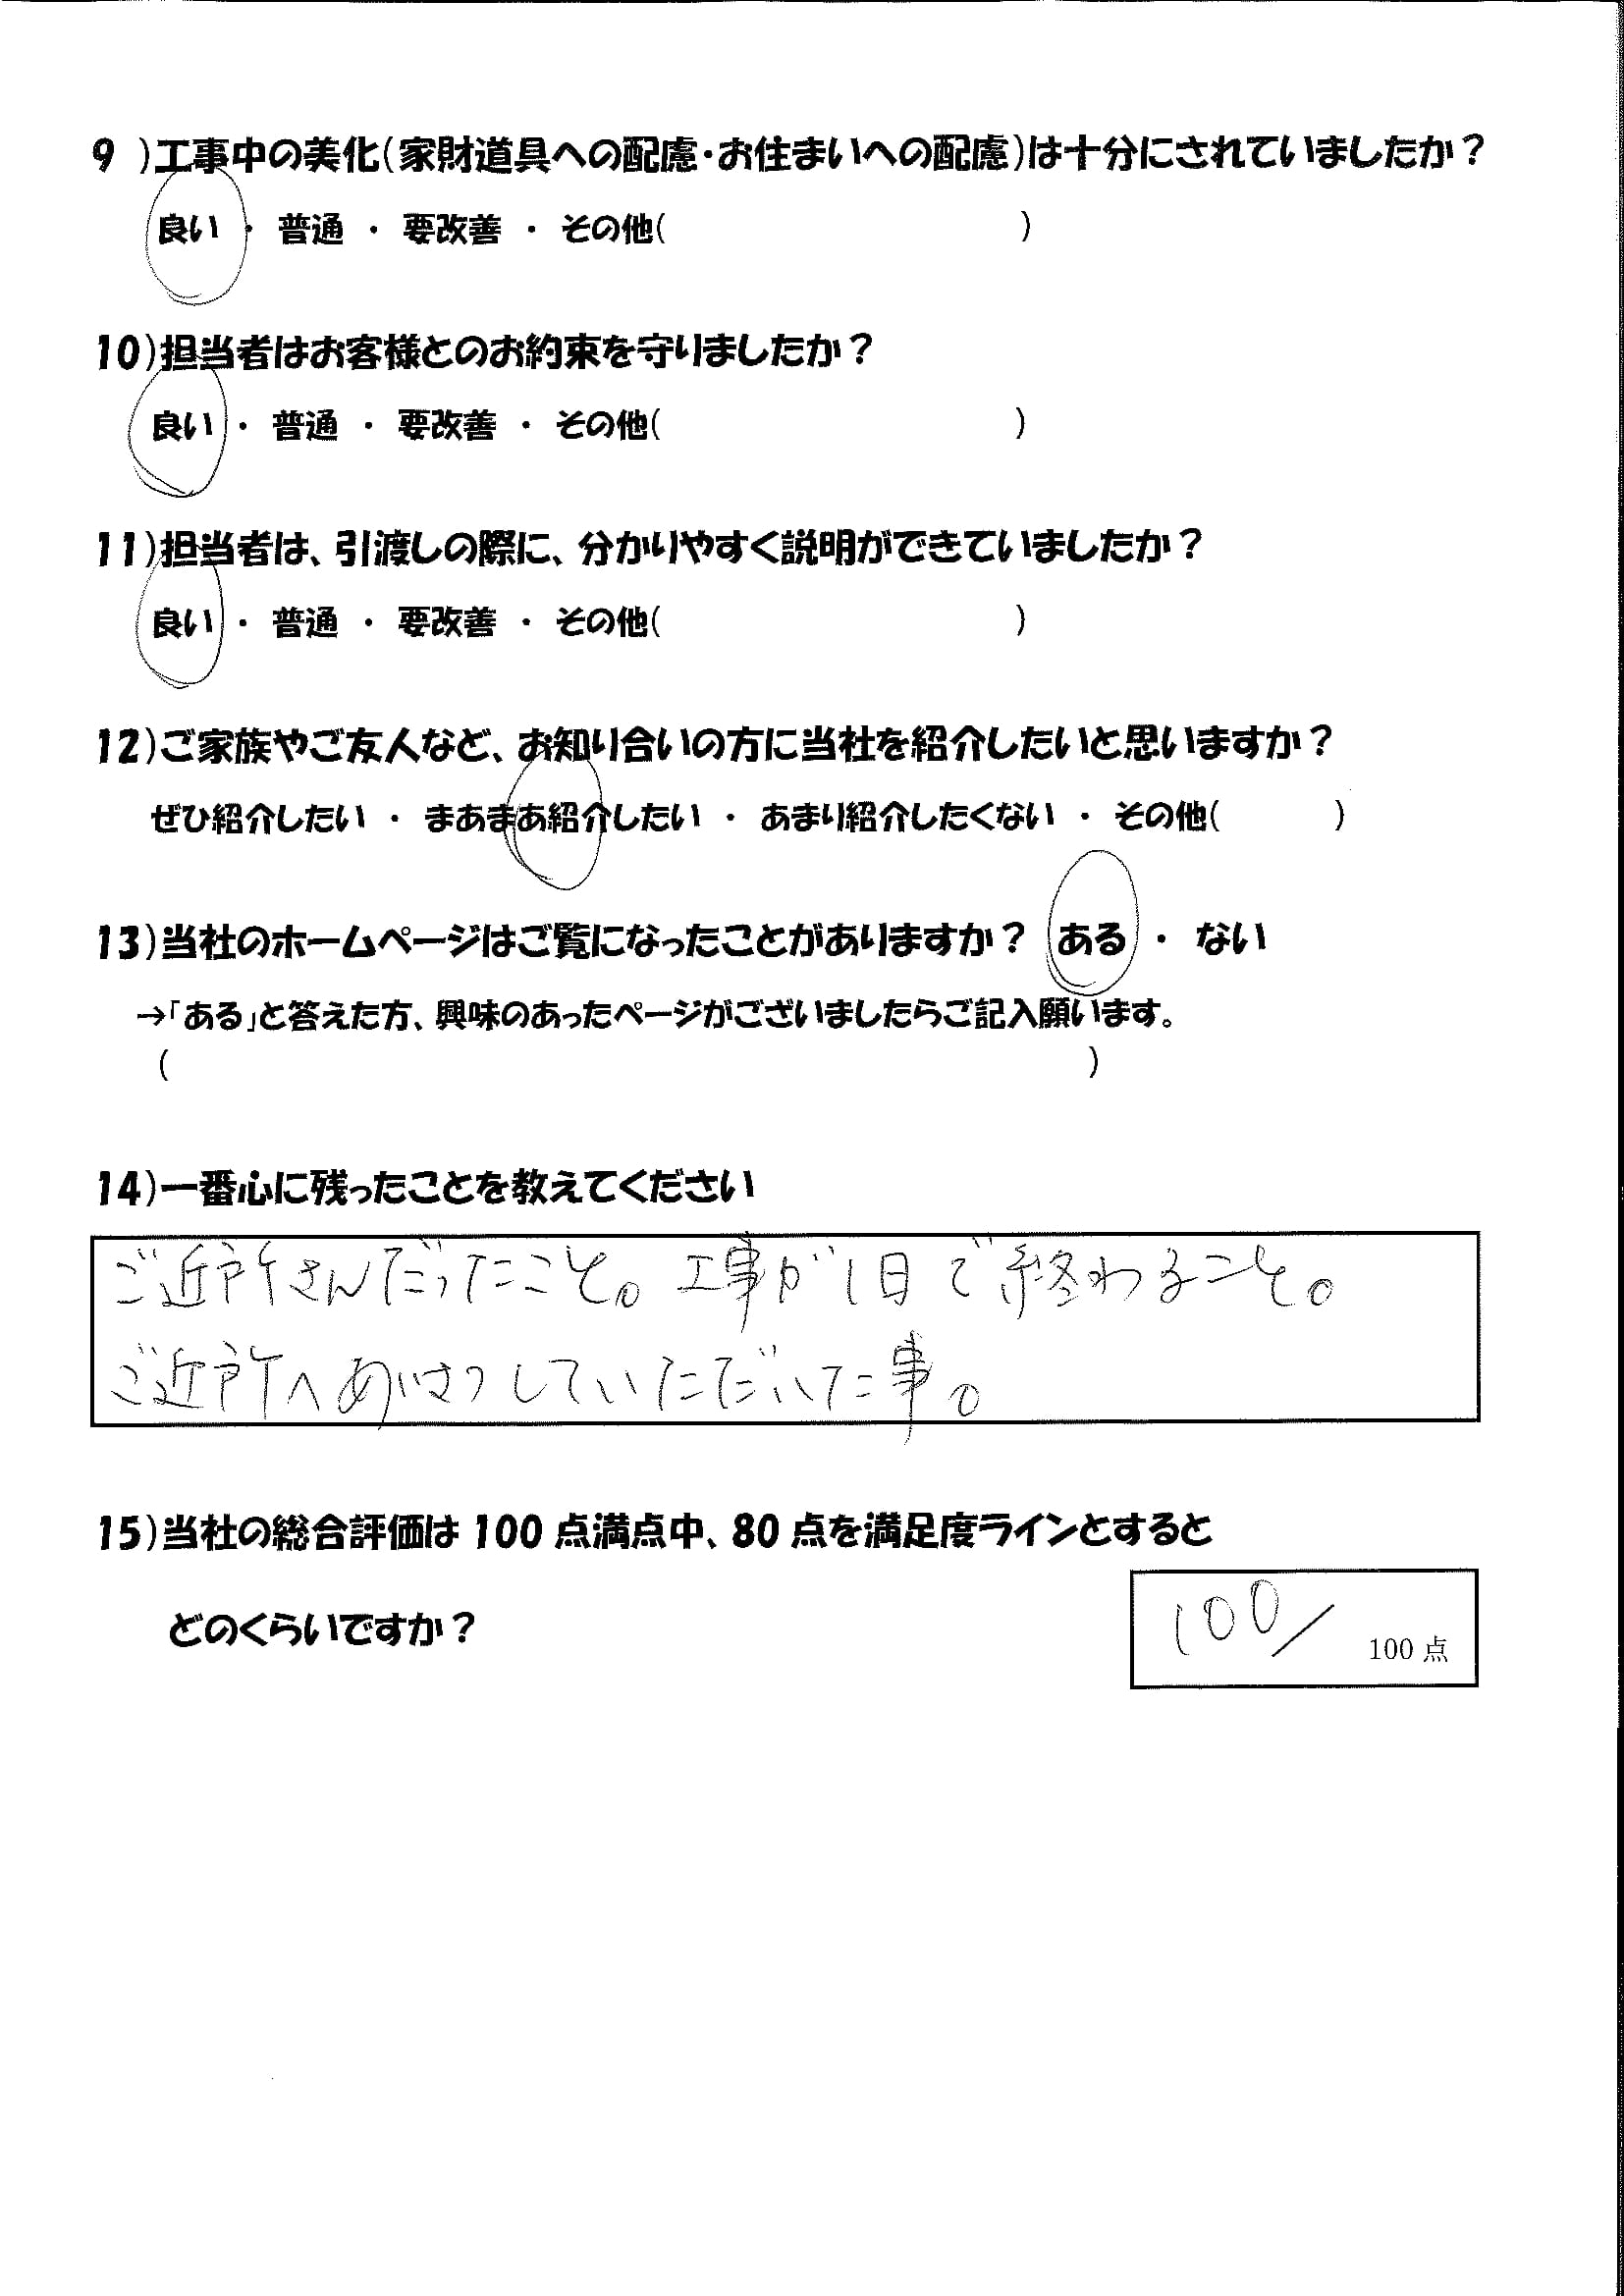 9 )工事中の美化(家財道具への配慮・お住まいへの配慮)は十分にされていましたか？
良い ・ 普通 ・ 要改善 ・ その他( )
10)担当者はお客様とのお約束を守りましたか？
良い ・ 普通 ・ 要改善 ・ その他( )
11)担当者は、引渡しの際に、分かりやすく説明ができていましたか？
良い ・ 普通 ・ 要改善 ・ その他( )
12)ご家族やご友人など、お知り合いの方に当社を紹介したいと思いますか？
ぜひ紹介したい ・ まあまあ紹介したい ・ あまり紹介したくない ・ その他( )
13)当社のホームページはご覧になったことがありますか？ ある ・ ない
→「ある」と答えた方、興味のあったページがございましたらご記入願います。
( )
14)一番心に残ったことを教えてください
ご近所さんだったこと。工事が1日で終わること。
ご近所へあいさつしていただいた事。
15)当社の総合評価は 100 点満点中、80 点を満足度ラインとすると
どのくらいですか？
100/ 100 点